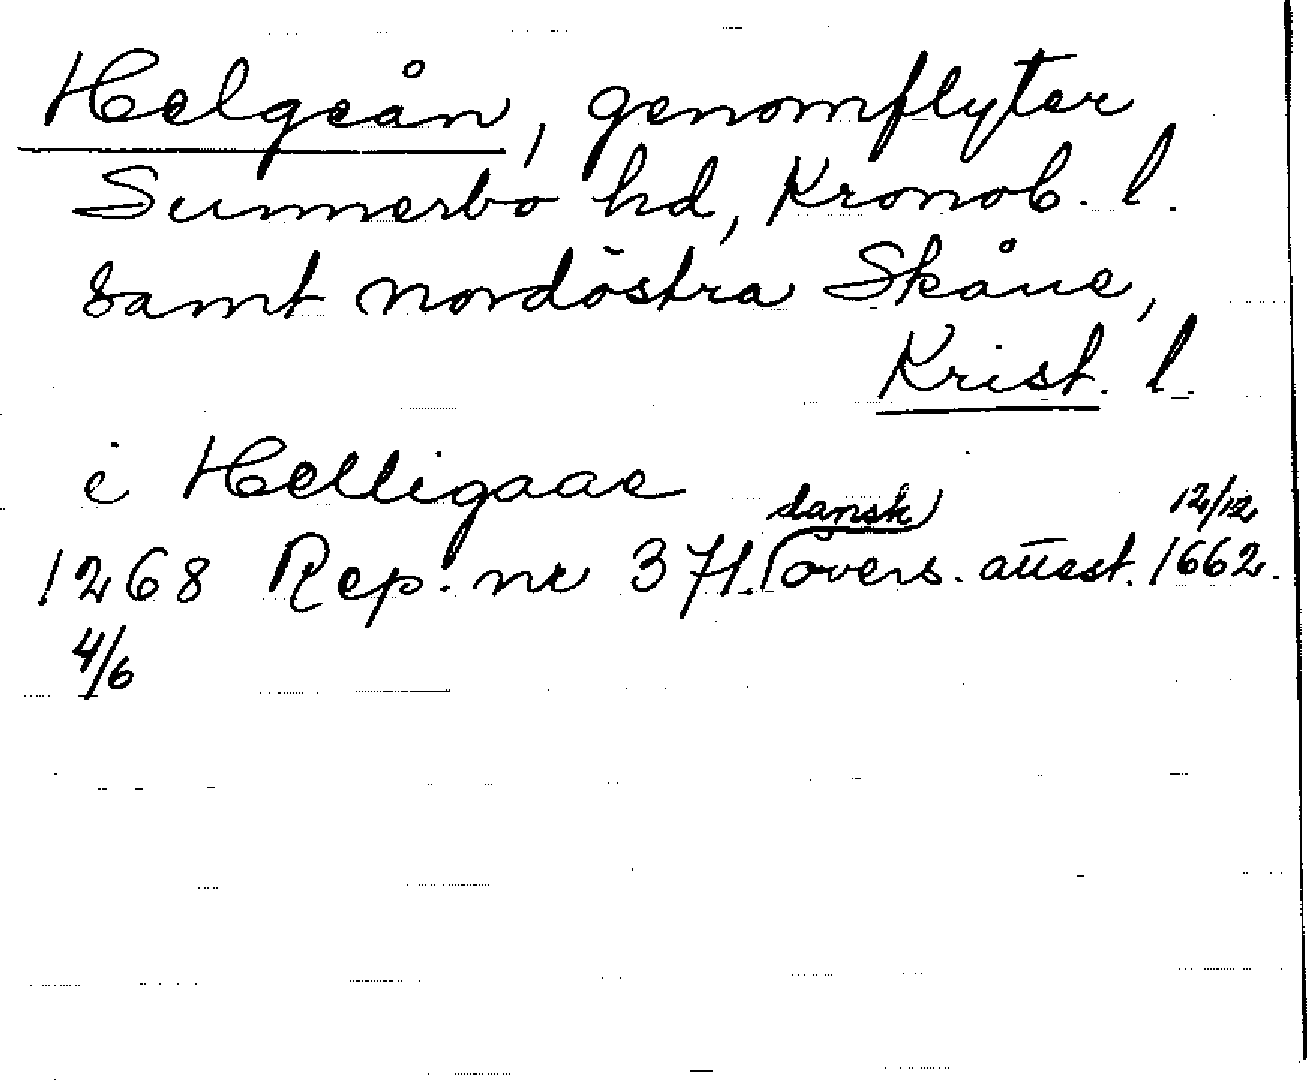 Helgeån, genomflyter
Sunnerbo hd, Kronob. l.
samt nordöstra Skåne,
Krist. l.
i Helligaae
dansk 12/12
1268 Rep. nr 371. övers. attest. 1662.
4/6